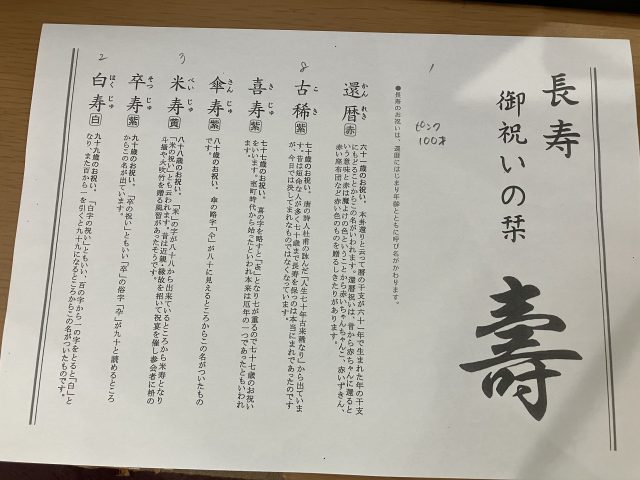 長寿
御祝いの栞
壽
●長寿のお祝いは、還暦にはじまり年齢とともに呼び名がかわります。
1
ピンク
100才
還暦 赤
かんれき
六十一歳のお祝い。本卦還りと云って暦の干支が六十一年で生まれた年の干支
にもどることからこの名がいわれます。還暦祝いは、昔から赤ちゃんに還ると
いう意味と赤は魔よけの色ということから赤いちゃんちゃんこ、赤いずきん、
赤い座布団など赤い色のものを贈るしきたりがあります。
8
古稀 紫
こき
七十歳のお祝い。唐の詩人杜甫の詠んだ「人生七十年古来稀なり」から出ていま
す。昔は短命な人が多く七十歳まで長寿を保つのは本当にまれであったのです
が、今日では決してまれなものではなくなっています。
喜寿 紫
きじゅ
七十七歳のお祝い。喜の字を略すと「㐂」となり七が重るので七十七歳のお祝い
をいいます。室町時代から始ったといわれ本来は厄年の一つであったともいわれ
ます。
傘寿 紫
さんじゅ
八十歳のお祝い。傘の略字「仐」が八十に見えるところからこの名がついたもの
です。
3
米寿 黄
べいじゅ
八十八歳のお祝い。「米」の字が八十八から出来ているところから米寿となり
「米の祝い」とも云われます。昔は近親・縁故を招いて祝宴を催し参会者に枡の
斗掻や火吹竹を贈る風習があったそうです。
卒寿 紫
そつじゅ
九十歳のお祝い。「卒の祝い」ともいい「卒」の俗字「卆」が九十と読めるところ
からこの名が出ています。
2
白寿 白
はくじゅ
九十九歳のお祝い。「白字の祝い」ともいい、百の字から一の字をとると「白」と
なり、また百から一を引くと九十九になるところからこの名がついたものです。